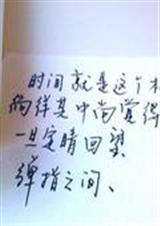 时间就是这个样
徜徉其中尚觉得
一旦定睛回望、
弹指之间、